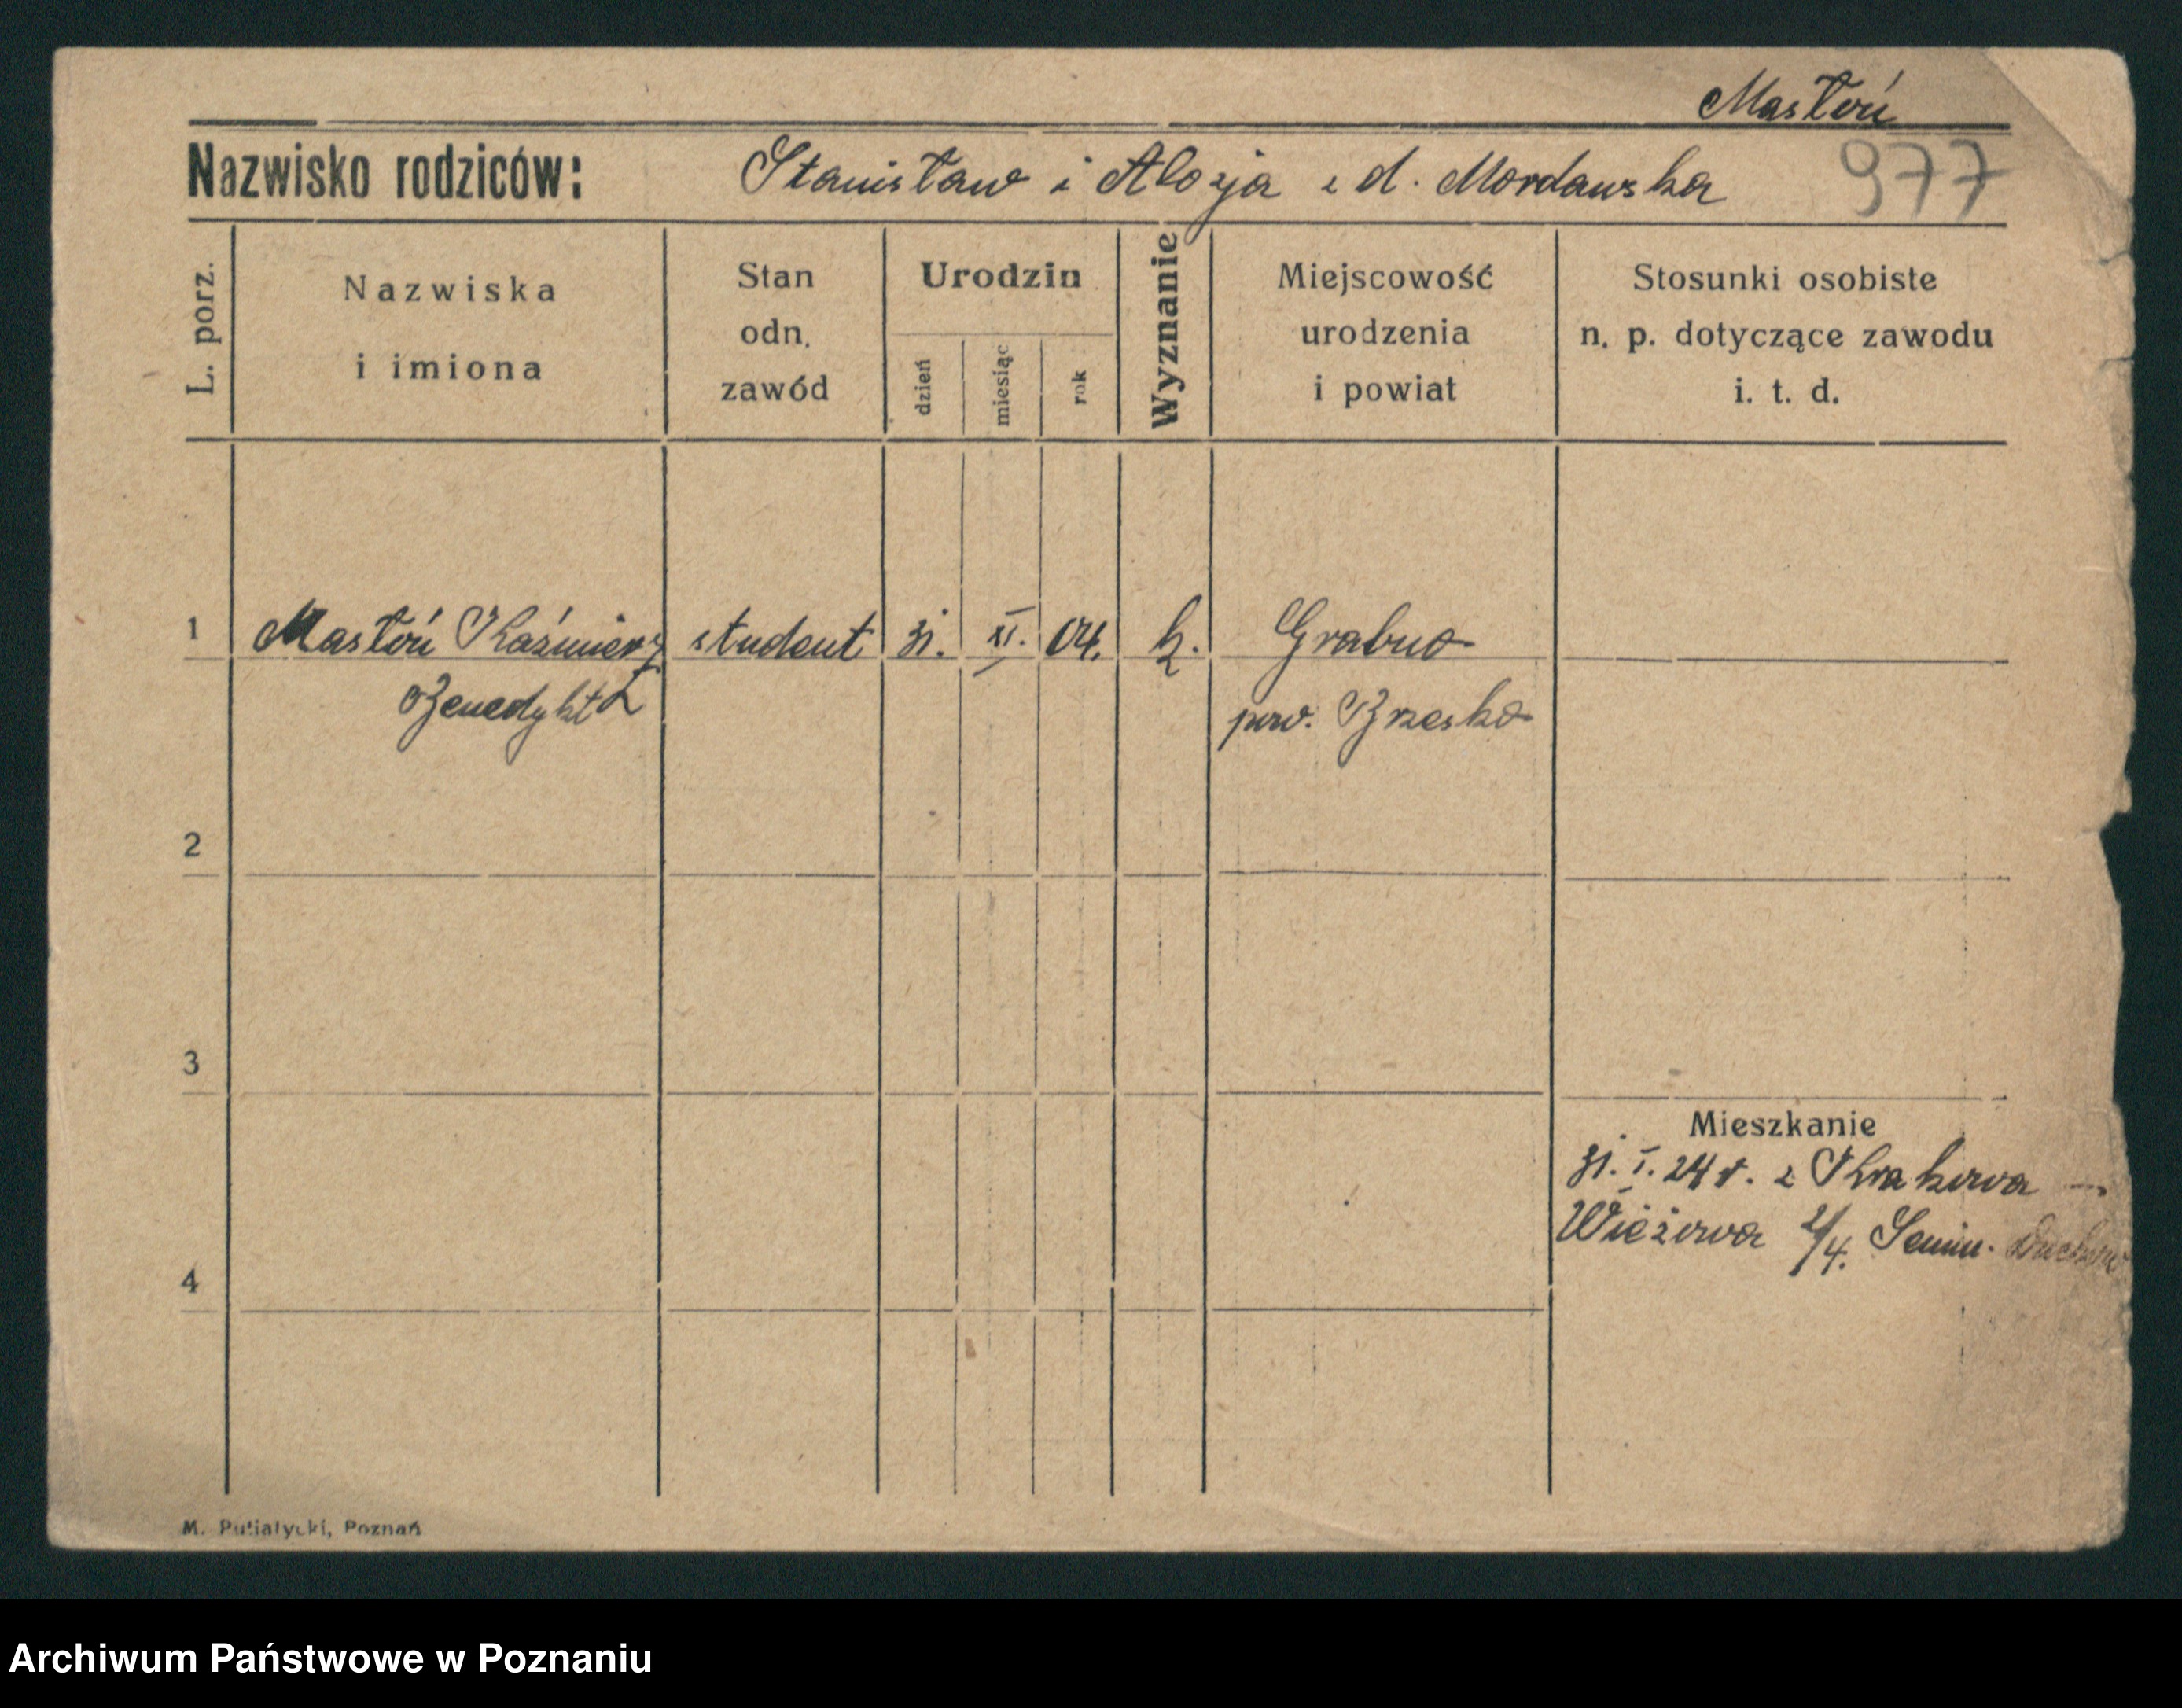 Mastoń
Nazwisko rodziców: Stanisław i Alozja z d. Mordawska 977
L. porz.
Nazwiska
i imiona
Stan
odn.
zawód
Urodzin
dzień
miesiąc
rok
Wyznanie
Miejscowość
urodzenia
i powiat
Stosunki osobiste
n. p. dotyczące zawodu
i. t. d.
1 Mastoń Kaźmierz student 31. XI. 04. k. Grabno
Benedykt pow. Brzesko
2
3
Mieszkanie
31. I. 24 r. z Krakowa
Wieżowa 2/4. Semin. Duchown
4
M. Putiatycki, Poznań
Archiwum Państwowe w Poznaniu